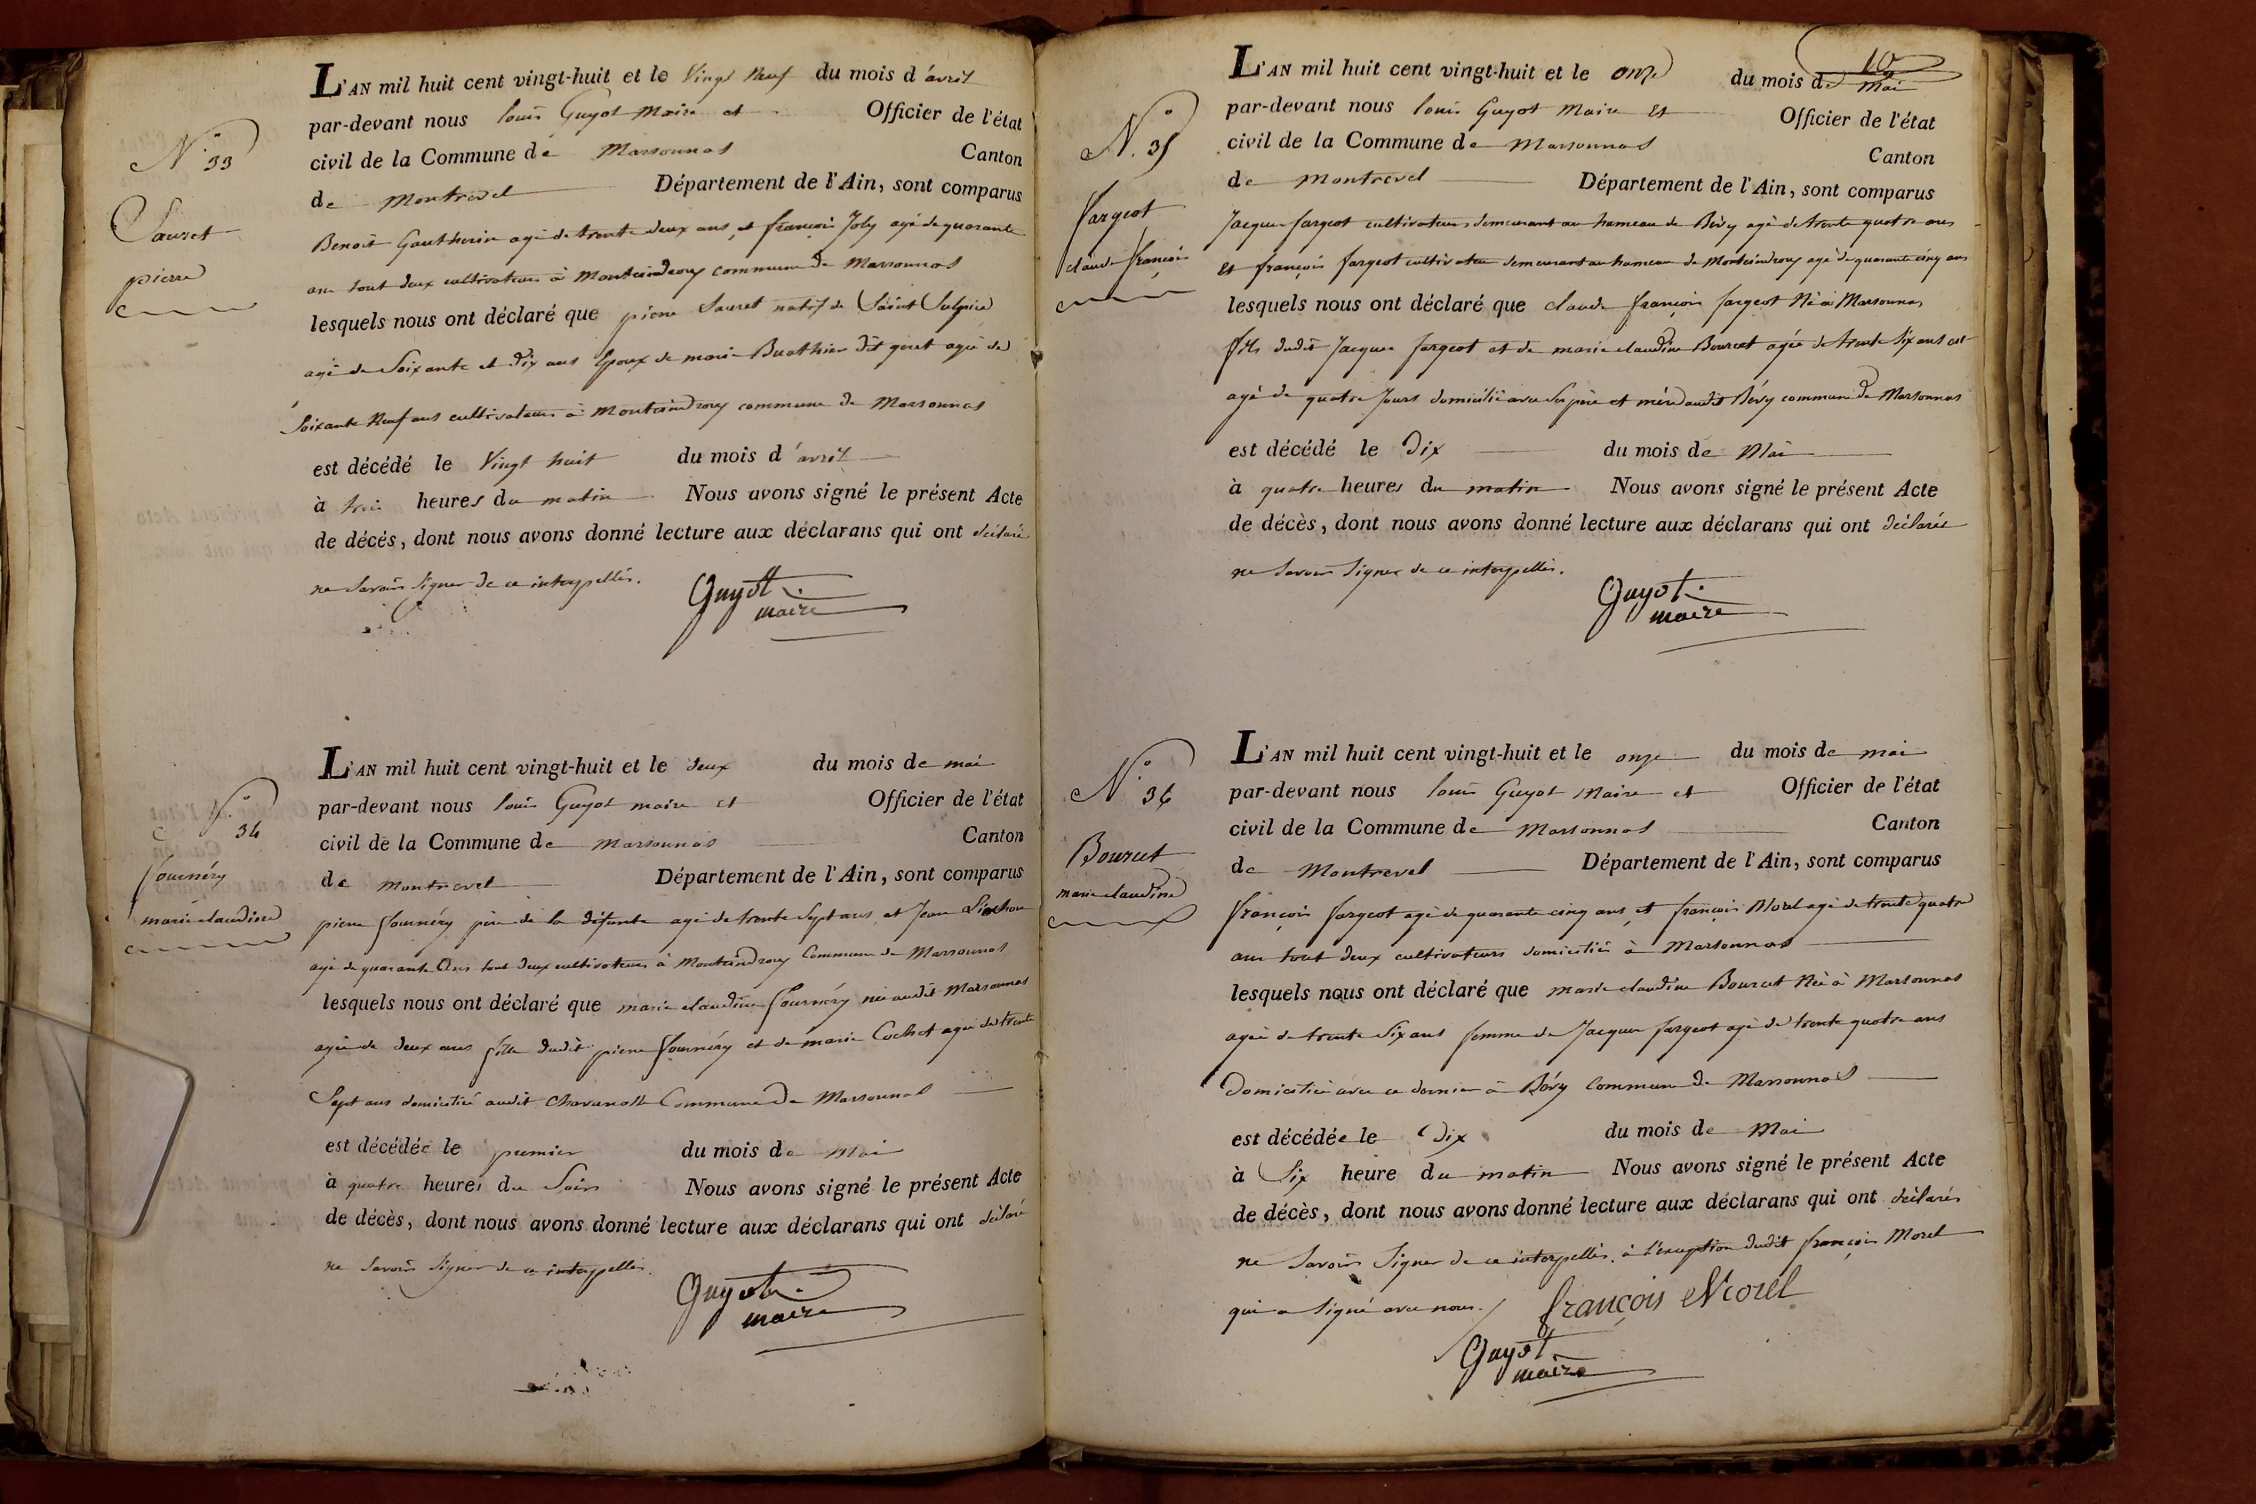 N.° 33
Sauret
pierre
L'AN mil huit cent vingt-huit et le Vingt Neuf du mois d'avril
par-devant nous louis Guyot Maire et Officier de l'état
civil de la Commune de Marsonnas Canton
de Montrevel Département de l'Ain, sont comparus
Benoit Gautherin agé de trente deux ans, et françois Joly agé de quarante
ans tout deux cultivateurs à Montcindroux commune de Marsonnas
lesquels nous ont déclaré que pierre Sauret natif de Saint Sulpice
agé de Soixante et Dix ans Epoux de marie Buathier dit goret agée de
Soixante Neuf ans cultivateurs à Montcindroux commune de Marsonnas
est décédé le Vingt huit du mois d'avril
à trois heures du matin Nous avons signé le présent Acte
de décés, dont nous avons donné lecture aux déclarans qui ont déclaré
ne Savoir Signer de ce interpellés.
Guyot
maire
N.° 34
fournéry
marie claudine
L'AN mil huit cent vingt-huit et le deux du mois de mai
par-devant nous louis Guyot maire et Officier de l'état
civil de la Commune de Marsonnas Canton
de Montrevel Département de l'Ain, sont comparus
pierre fournéry père de la défunte agé de trente Sept ans, et Jean
agé de quarante Ans tout deux cultivateurs à Montcindroux Commune de Marsonnas
lesquels nous ont déclaré que marie claudine fournéry née audit Marsonnas
agée de deux ans fille dudit pierre fournéry et de marie Cochet agée de trente
Sept ans domicilié audit Commune de Marsonnas
est décédée le premier du mois de Mai
à quatre heures du Soir Nous avons signé le présent Acte
de décès, dont nous avons donné lecture aux déclarans qui ont déclaré
ne Savoir Signer de ce interpellés.
Guyot
maire
10
N.° 35
fargeot
claude françois
L'AN mil huit cent vingt-huit et le onze du mois de Mai
par-devant nous louis Guyot Maire Et Officier de l'état
civil de la Commune de Marsonnas Canton
de Montrevel Département de l'Ain, sont comparus
Jacques fargeot cultivateur demeurant au hameau de Bévy agé de trente quatre ans
Et françois fargeot cultivateur demeurant au hameau de Montcindroux agé de quarante cinq ans
lesquels nous ont déclaré que claude françois fargeot Né à Marsonnas
fils dudit Jacques fargeot et de marie claudine Bourcet agée de trente Six ans est
agé de quatre Jours domicilié avec Ses père et mère audit Bévy commune de Marsonnas
est décédé le Dix du mois de Mai
à quatre heures du matin Nous avons signé le présent Acte
de décès, dont nous avons donné lecture aux déclarans qui ont déclarés
ne Savoir Signer de ce interpellés.
Guyot
maire
N.° 36
Bourcet
marie claudine
L'AN mil huit cent vingt-huit et le onze du mois de mai
par-devant nous louis Guyot Maire et Officier de l'état
civil de la Commune de Marsonnas Canton
de Montrevel Département de l'Ain, sont comparus
françois fargeot agé de quarante cinq ans, et françois Morel agé de trente quatre
ans tout deux cultivateurs domiciliés à Marsonnas
lesquels nous ont déclaré que marie claudine Bourcet Née à Marsonnas
agée de trente Six ans femme de Jacques fargeot agé de trente quatre ans
Domiciliée avec ce dernier à Bévy Commune de Marsonnas
est décédée le Dix du mois de Mai
à Six heure du matin Nous avons signé le présent Acte
de décès, dont nous avons donné lecture aux déclarans qui ont déclarés
ne Savoir Signer de ce interpellés. à l'exception dudit françois Morel
qui a Signé avec nous.
françois Morel
Guyot
maire